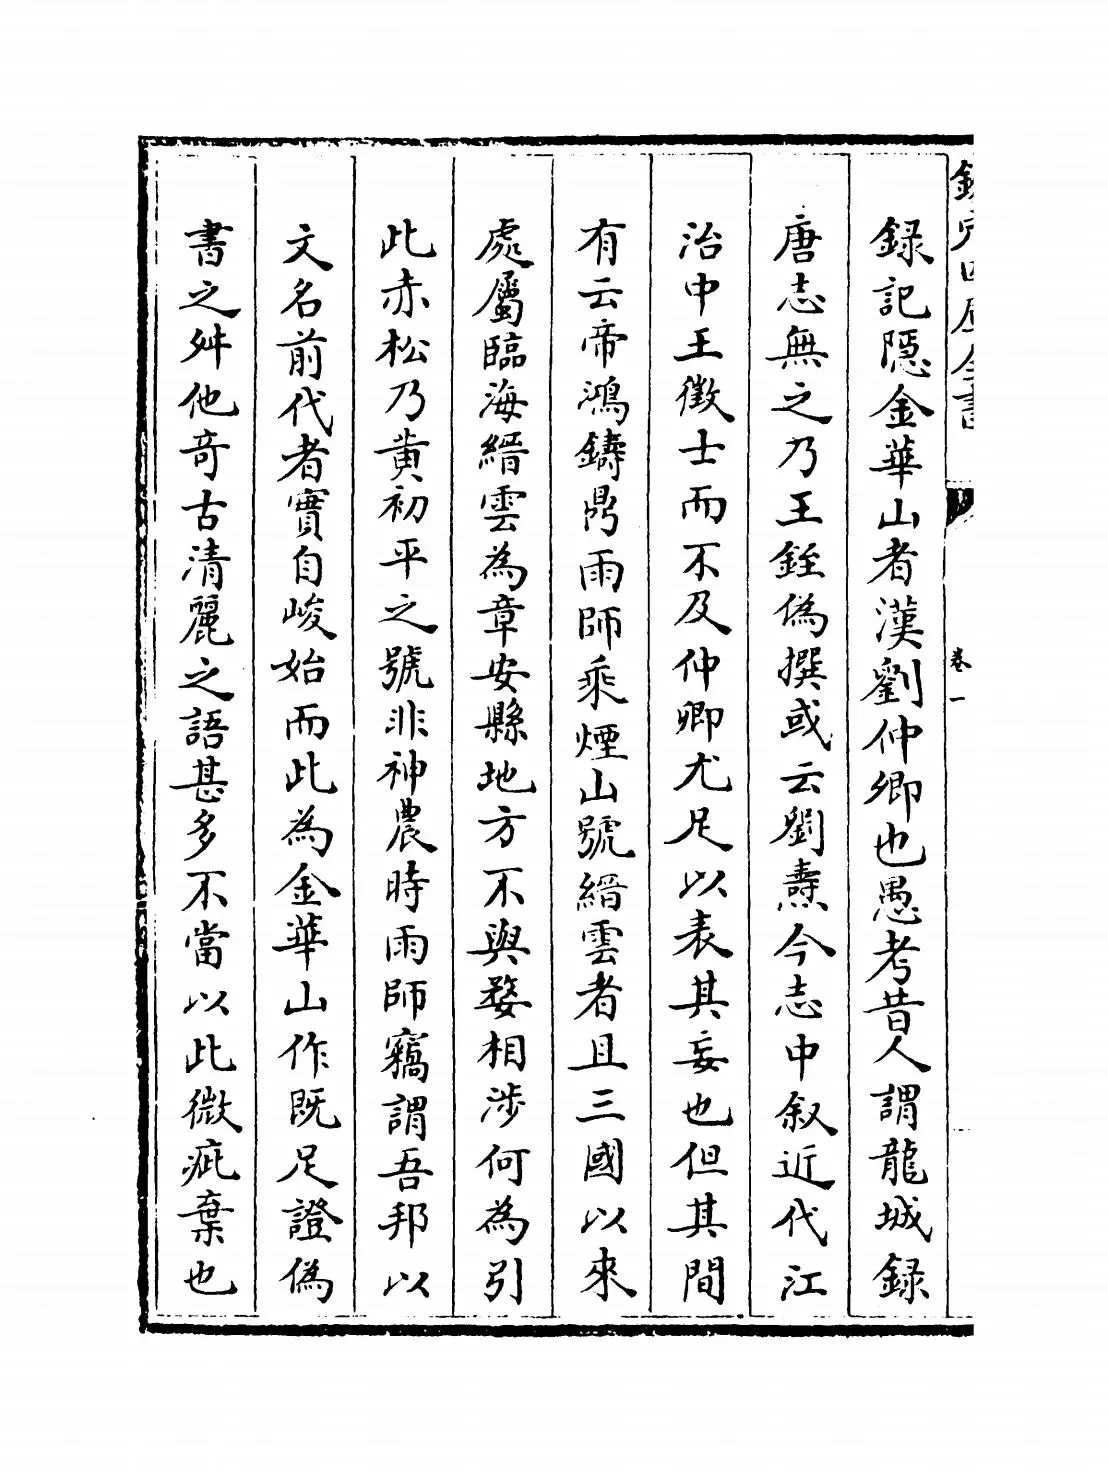 欽定四庫全書
卷一
録記隠金華山者漢劉仲卿也愚考昔人謂龍城録
唐志無之乃王銍偽撰或云劉燾今志中叙近代江
治中王徵士而不及仲卿尤足以表其妄也但其間
有云帝鴻鑄鼎雨師乘煙山號縉雲者且三國以來
處屬臨海縉雲為章安縣地方不與婺相涉何為引
此赤松乃黄初平之號非神農時雨師竊謂吾邦以
文名前代者實自峻始而此為金華山作既足證偽
書之舛他竒古清麗之語甚多不當以此微疵棄也